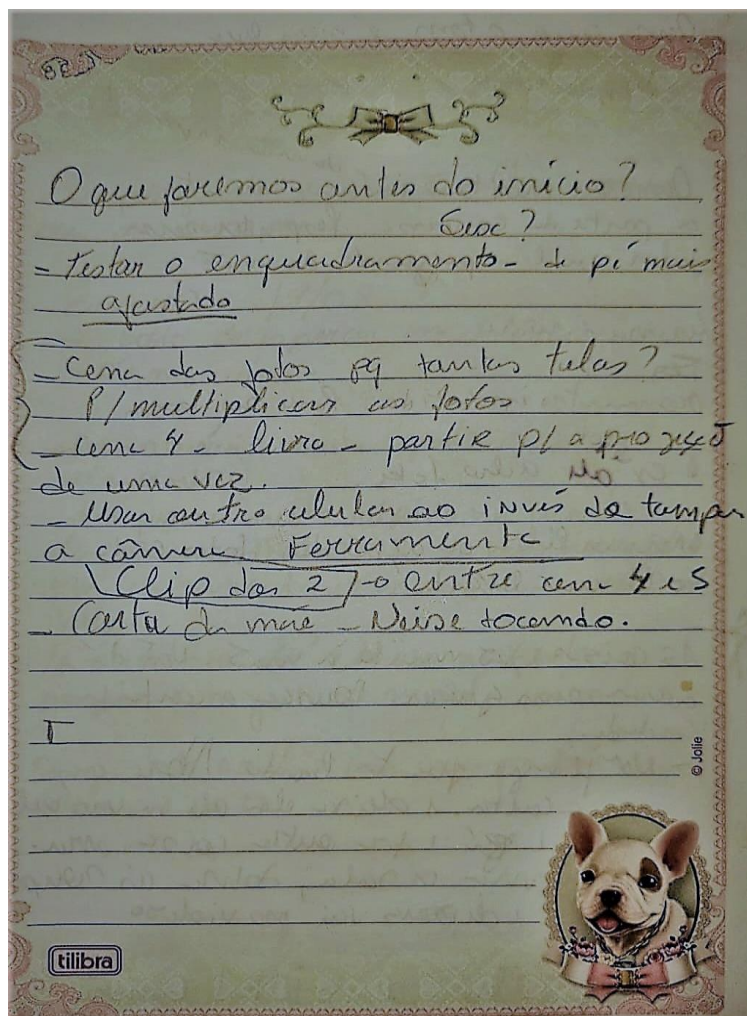 O que faremos antes do início?
Sesc?
- Testar o enquadramento - de pé mais
afastado
- Cena das fotos pq tantas telas?
P/ multiplicar as fotos
- Cena 4 - livro - partir p/ a projeção
de uma vez.
- Usar outro celular ao invés de tampar
a câmera Ferramenta
Clip das 2 → entre cena 4 e 5
- Carta da mãe - Neise tocando.
© Jolie
tilibra